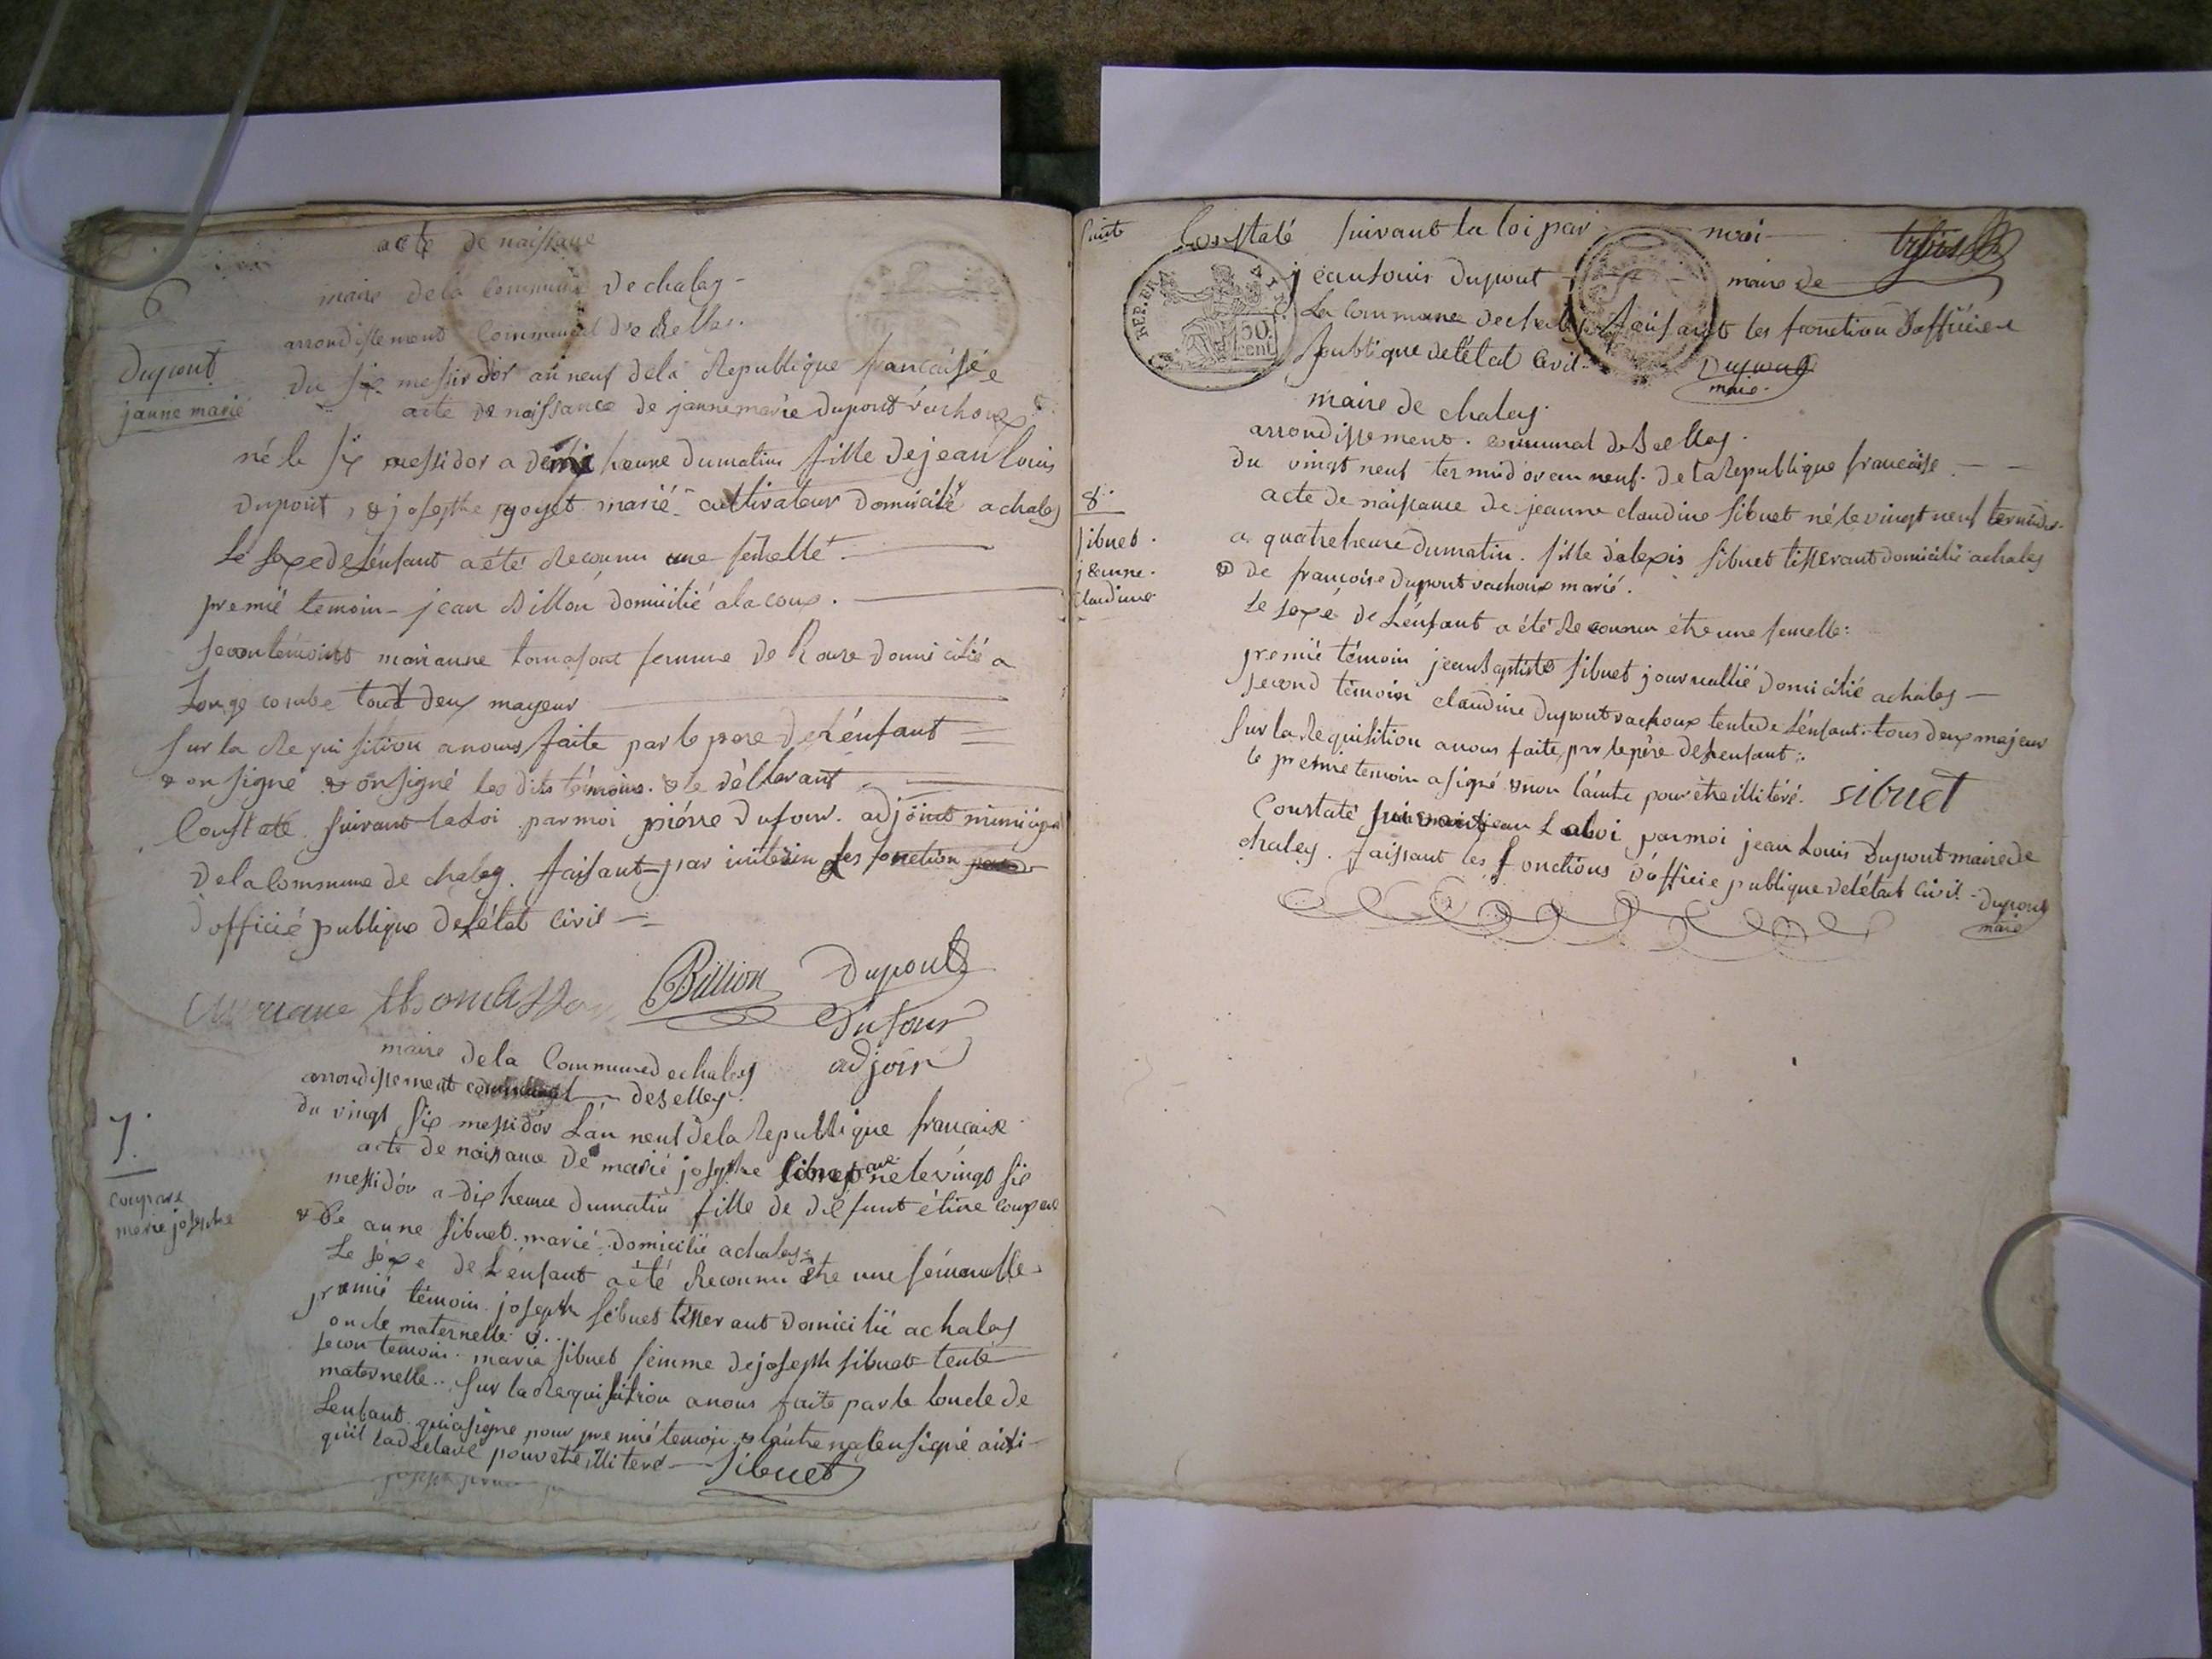 acte de naissance
6
maire de la commune de chaley
arrondissement communal de Belley.
Dupont
janne marie
du six messidor an neuf de la Republique francaise
acte de naissance de jannemarie dupont vachoux
né le six messidor a demi heure du matin fille de jean louis
dupont, & josephe goyet marié cultivateur domicilié a chaley
Le sexe de Lenfant a été Reconnu une femelle
premié temoin jean Billon domicilié a la coux.
secon temoins marianne tomasont femme de Roure domicilié a
Longe combe tout deux mayeur
sur la Requisition a nous faite par le pere de Lénfant
& on signé & on signé les dits témoins. & le déllarant
Constaté suivant la Loi par moi piérre dufour. adjoint municipal
de la Commune de chaley. faisant par interim les fonction
d'officié publique de Létat civil
Mariane thomasson Billion Dupont
Dufour
adjoin
maire de la Commune de chaley
arrondissement communal de Belley.
7.
du vingt six messidor Lan neuf de la Republique francaise
coupare
marie josephe
acte de naissance de marié josephe né le vingt six
messidor a dix heure du matin fille de défunt étine coupare
& de anne sibuet. marié. domicilié a chaley
Le séxe de Lénfant a été Reconnu étre une fémauelle
premié témoin. joseph sibuet tisserant domicilié a chaley
oncle maternelle
secon temoin marie sibuet femme de joseph sibuet tente
maternelle.. sur la Requisition a nous faite par le loncle de
Lenfant qui a signe pour premié temoin & lautre na pas signé ainsi
quil la déclaré pour etre illiteré sibuet
suite
Constaté suivant la loi par moi
REP. FRA
50. cent
jean Louis dupont maire de
La Commune de chaley faisant les fonction dofficier
publique de létat civil. Dupont
maire.
maire de chaley.
arrondissement. communal de Belley.
du vingt neuf termidor an neuf. de la Republique francaise
8
sibuet.
jeanne.
claudine
acte de naissance de jeanne claudine sibuet né le vingt neuf termidor
a quatre heure du matin. fille d'alexis sibuet tisserant domicilié a chaley
& de françoise dupont vachoux marié.
Le sexe de Lénfant a été Reconnu étre une femelle:
premié témoin jean Baptiste sibuet journallié domicilié a chaley
second témoin claudine dupont vachoux tente de Lénfant. tous deux majeur
sur la Requisition a nous faite par le père de Lenfant:
le premie temoin a signé & non lautre pour étre illiteré. sibuet
Constaté La loi par moi jean Louis Dupont maire de
chaley. faissant les fonctions d'officie publique de létat civil. dupont
maire